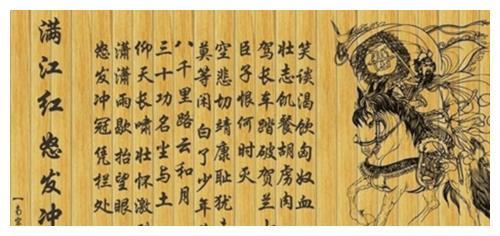 满江红 怒发冲
怒发冲冠凭栏处
潇潇雨歇抬望眼
仰天长啸壮怀激
三十功名尘与土
八千里路云和月
莫等闲白了少年
空悲切靖康耻犹
臣子恨何时灭
驾长车踏破贺兰
壮志饥餐胡虏肉
笑谈渴饮匈奴血